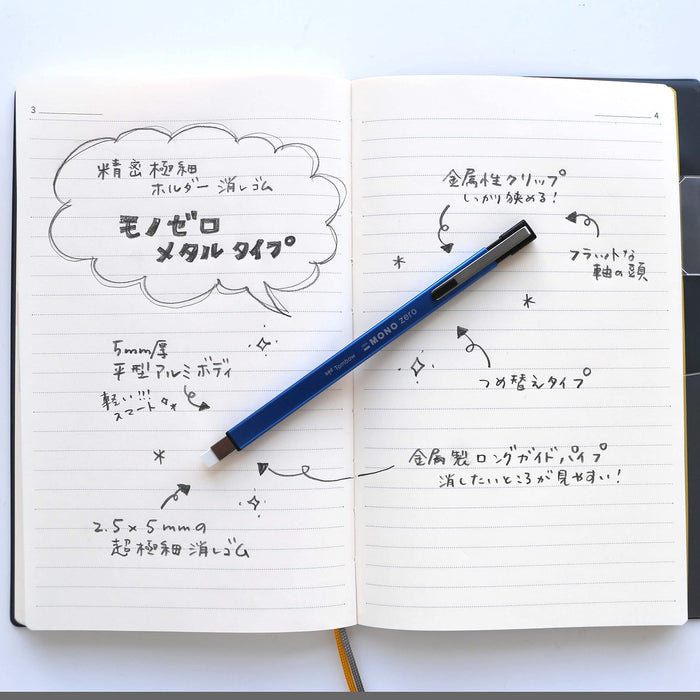 3
精密極細
ホルダー消しゴム
モノゼロ
メタルタイプ
5mm厚
平型アルミボディ
軽い!!!
スマート
2.5×5mmの
超極細消しゴム
Tombow MONO zero
4
金属性クリップ
しっかり狭める!
フラットな
軸の頭
つめ替えタイプ
金属製ロングガイドパイプ
消したいところが見やすい!